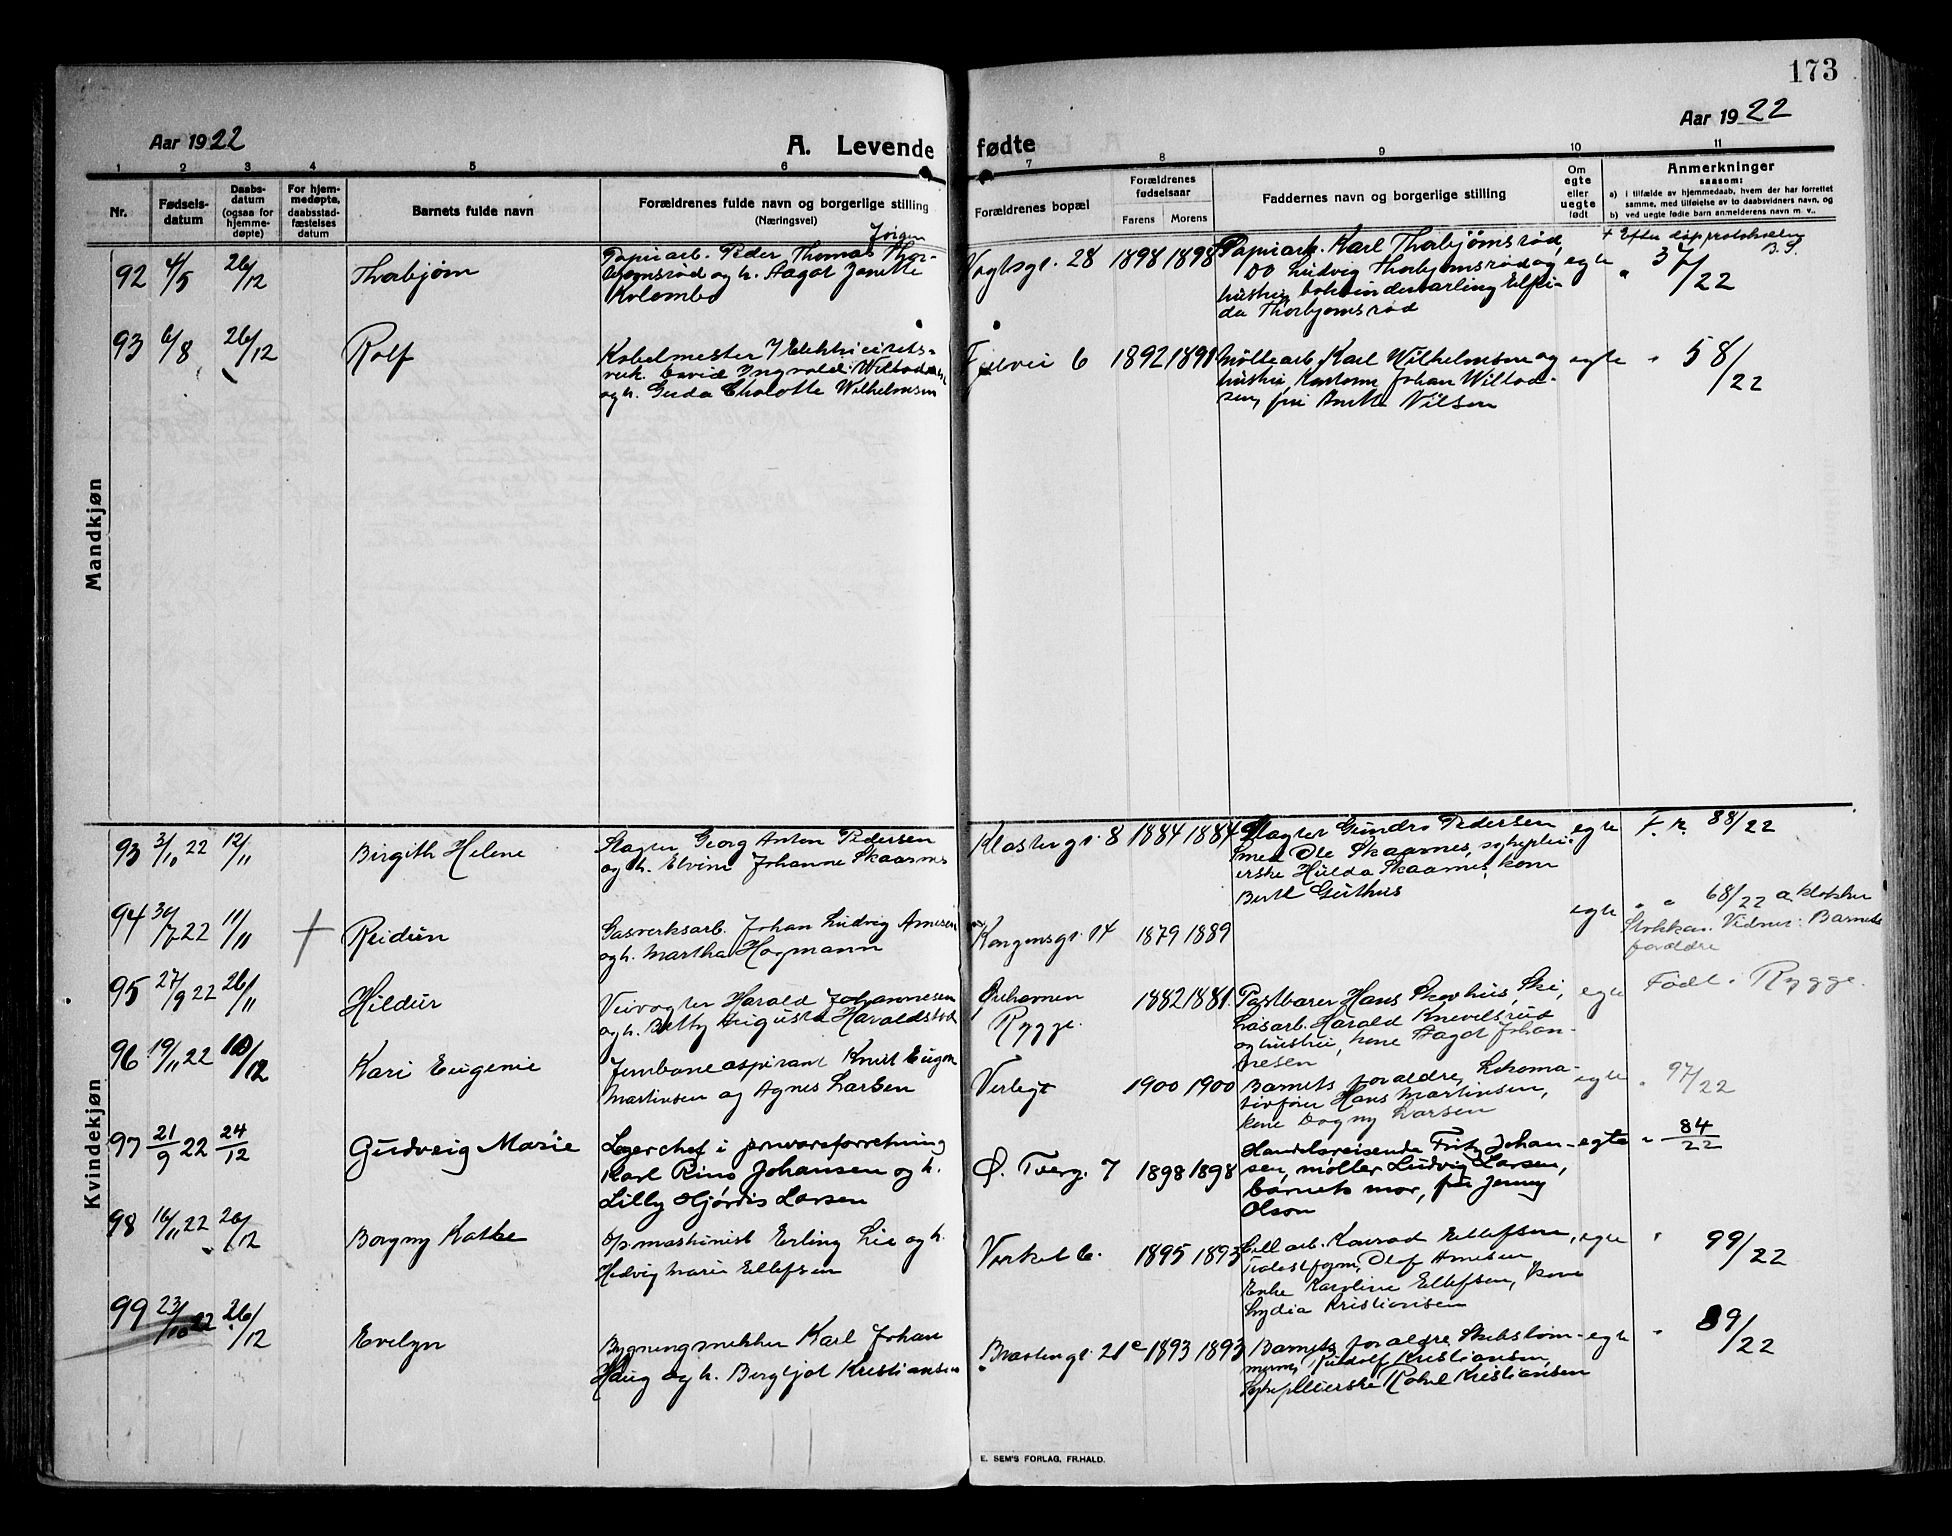 173
Aar 1922
Aar 1922
A. Levende fødte
1 2 3 4 5 6 7 8 9 10 11
Nr.
Fødsels-
datum
Daabs-
datum
(ogsaa for
hjemme-
døpte)
For hjem-
medøpte,
daabsstad-
fæstelses
datum
Barnets fulde navn
Forældrenes fulde navn og borgerlige stilling
(Næringsvei)
Forældrenes bopæl
Forældrenes
fødselsaar
Farens Morens
Faddernes navn og borgerlige stilling
Om
egte
eller
uegte
født
Anmerkninger
saasom:
a) i tilfælde av hjemmedaab, hvem der har forrettet
samme, med tilføielse av to daabsvidners navn, og
b) ved uegte fødte barn anmelderens navn m. v.,
Mandkjøn
92 4/5 26/12 Thorbjørn
Jørgen
Papirarb. Peder Thomas Thor-
bjørnsrød og h. Aagot Janette
Kolombo
Vogtsgt. 28 1898 1898
Papirarb. Karl Thorbjørnsrød,
Do Ludvig Thorbjørnsrød og
hustru, Erling Elfri-
da Thorbjørnsrød
egte
+ Efter døpprotokollen
B.S.
" 37/22
93 6/8 26/12 Rolf
Kabelmester v/ Elektricitets-
verk. David Ingvald
og h. Gerda Chalotte Wilhelmsen
6 1892 1891
Møllearb. Karl Wilhelmsen og
hustru, Johan
sen, frk Nilsen
egte
" 58/22
Kvindekjøn
93 3/10 22 12/11 Birgith Helene
Slagter Georg Anton Pedersen
og h. Elvine Johanne Skaarnes
Klostergt. 8 1884 1884
Slagter Gundro Pedersen
Smed Ole Skaarnes, sykeplei-
erske Hulda Skaarnes, kone
Berte Guthus
egte
F. R. 88/22
94 30/7 22 11/11 + Reidun
Gasverksarb. Johan Ludvig Arnesen
og h. Martha Hogmann
Kongensgt. 14 1879 1889
egte
" " 68/22 a. klokker
Stokkan. Vidner: Barnets
forældre
95 27/9 22 26/11 Hildur
Veivogter Harald Johannesen
og h. Betty Augusta Haraldstad
Ørehavnen
Rygge.
1882 1881.
Postbærer Hans Skovhus, Ski,
Løsarb. Harald Knevelsrud
og hustru, kone Aagot Johan-
nesen
egte
Født i Rygge.
96 19/11 22 10/12 Kari Eugenie
Jernbaneaspirant Knut Eugen
Martinsen og Agnes Larsen
Verlegt 1900 1900
Barnets forældre, Lokomo-
tivfører Hans Martinsen,
kone Dagny Larsen
egte
" 97/22
97 21/9 22 24/12 Gudveig Marie
Lagerchef i
Karl Rino Johansen og h.
Lilly Hjørdis Larsen
Ø. Tverg. 7 1898 1898
Handelsreisende Fritz Johan-
sen, møller Ludvig Larsen,
barnets mor, fru Jenny
Olson
egte
" 84/22
98 16/11 22 26/12 Borgny Kathe
Op. maskinist Erling Lie og h.
Hedvig Marie Ellefsen
Værket 6. 1895 1893
Cell. arb. Konrad Ellefsen,
Olof Arnesen
Enke Karoline Ellefsen, kone
Lydia Kristiansen
egte
" 99/22
99 23/10 22 26/12 Evelyn
Bygningssnekker Karl Johan
Haug og h. Bergljot Kristiansen
21c 1893 1893
Barnets forældre, Skibstøm-
merm. Rudolf Kristiansen,
Sykepleierske Rakel Kristiansen
egte
" 89/22
E. SEM'S FORLAG, FR.HALD.